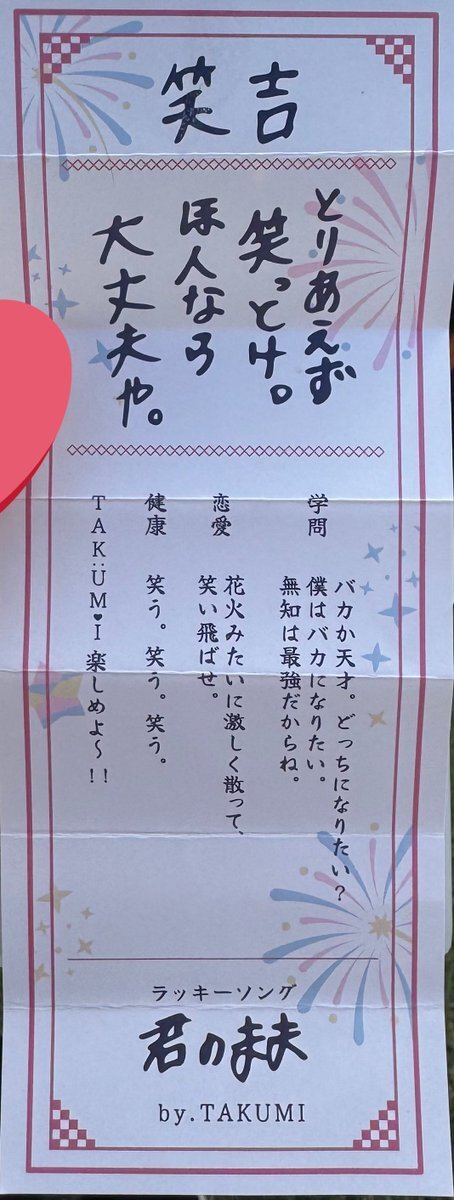 笑吉
とりあえず
笑っとけ。
ほんなら
大丈夫や。
学問
バカか天才。どっちになりたい?
僕はバカになりたい。
無知は最強だからね。
恋愛
花火みたいに激しく散って、
笑い飛ばせ。
健康 笑う。笑う。笑う。
TAKÜM♥I 楽しめよ〜!!
ラッキーソング
君のまま
by.TAKUMI